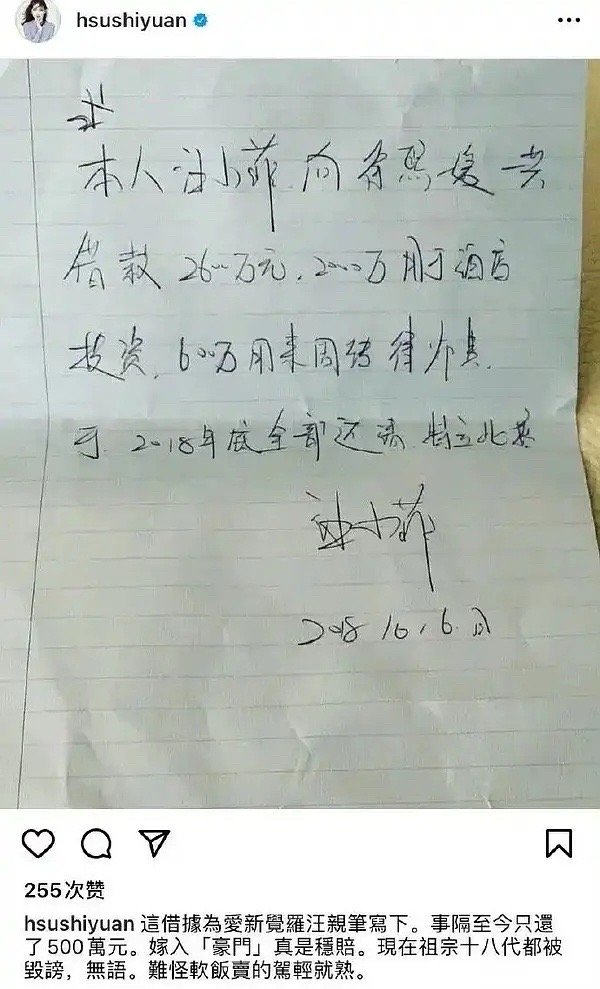 hsushiyuan
本人汪小菲向徐熙媛共
借款2600万元，2000万用于酒店
投资，600万用来周转律师费，
于2018年底全部还清 特立此
汪小菲
2018 10.6.
255次赞
hsushiyuan 這借據為愛新覺羅汪親筆寫下。事隔至今只還
了500萬元。嫁入「豪門」真是穩賠。現在祖宗十八代都被
毀謗，無語。難怪軟飯賣的駕輕就熟。